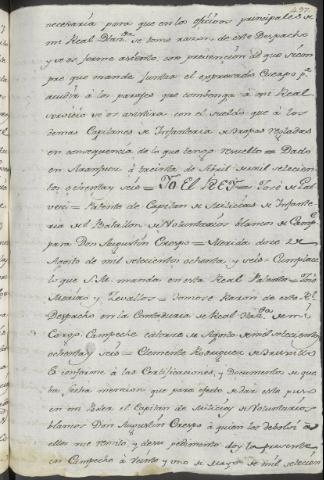 497
necesaria para que en los oficios principales de
mi Real Haz.da se tome razon de este Despacho
y se os forme asiento, con prevencion de que siem
pre que mande Juntar el expresado Cuerpo p.a
acudir à los parajes que combenga à mi Real
servicio se os asistira con el sueldo que à los
demas Capitanes de Infanteria de Tropas Regladas
en consequencia de lo que tengo resuelto = Dado
en Aranjuez à treinta de Abril de mil setecien
tos ochenta y seis = Yo EL REY = José de Gal
vez = Patente de Capitan de Milicias de Infante
ria de el Batallon de Voluntarios blancos de Camp.e
para Don Augustin Crespo = Merida doze de
Agosto de mil setecientos ochenta y seis = Cumplase
lo que S.M. manda en esta Real Patente = José
Merino y Zevallos = Tomose Razon de este R.l
Despacho en la Contaduria de Real Haz.da de mi
Cargo. Campeche catorze de Agosto de mil setecientos
ochenta y seis = Clemente Rodriguez de Truxillo
Es conforme à las Certificaciones, y Documentos de que
ha fecha mencion que para efecto de dar esta puso
en mi Poder el Capitan de Milicias de Voluntarios
blancos Don Augustin Crespo à quien los debolví à
ellos me remito, y de su pedimento doy la presente
en Campeche à veinte y uno de Mayo de mil setecien